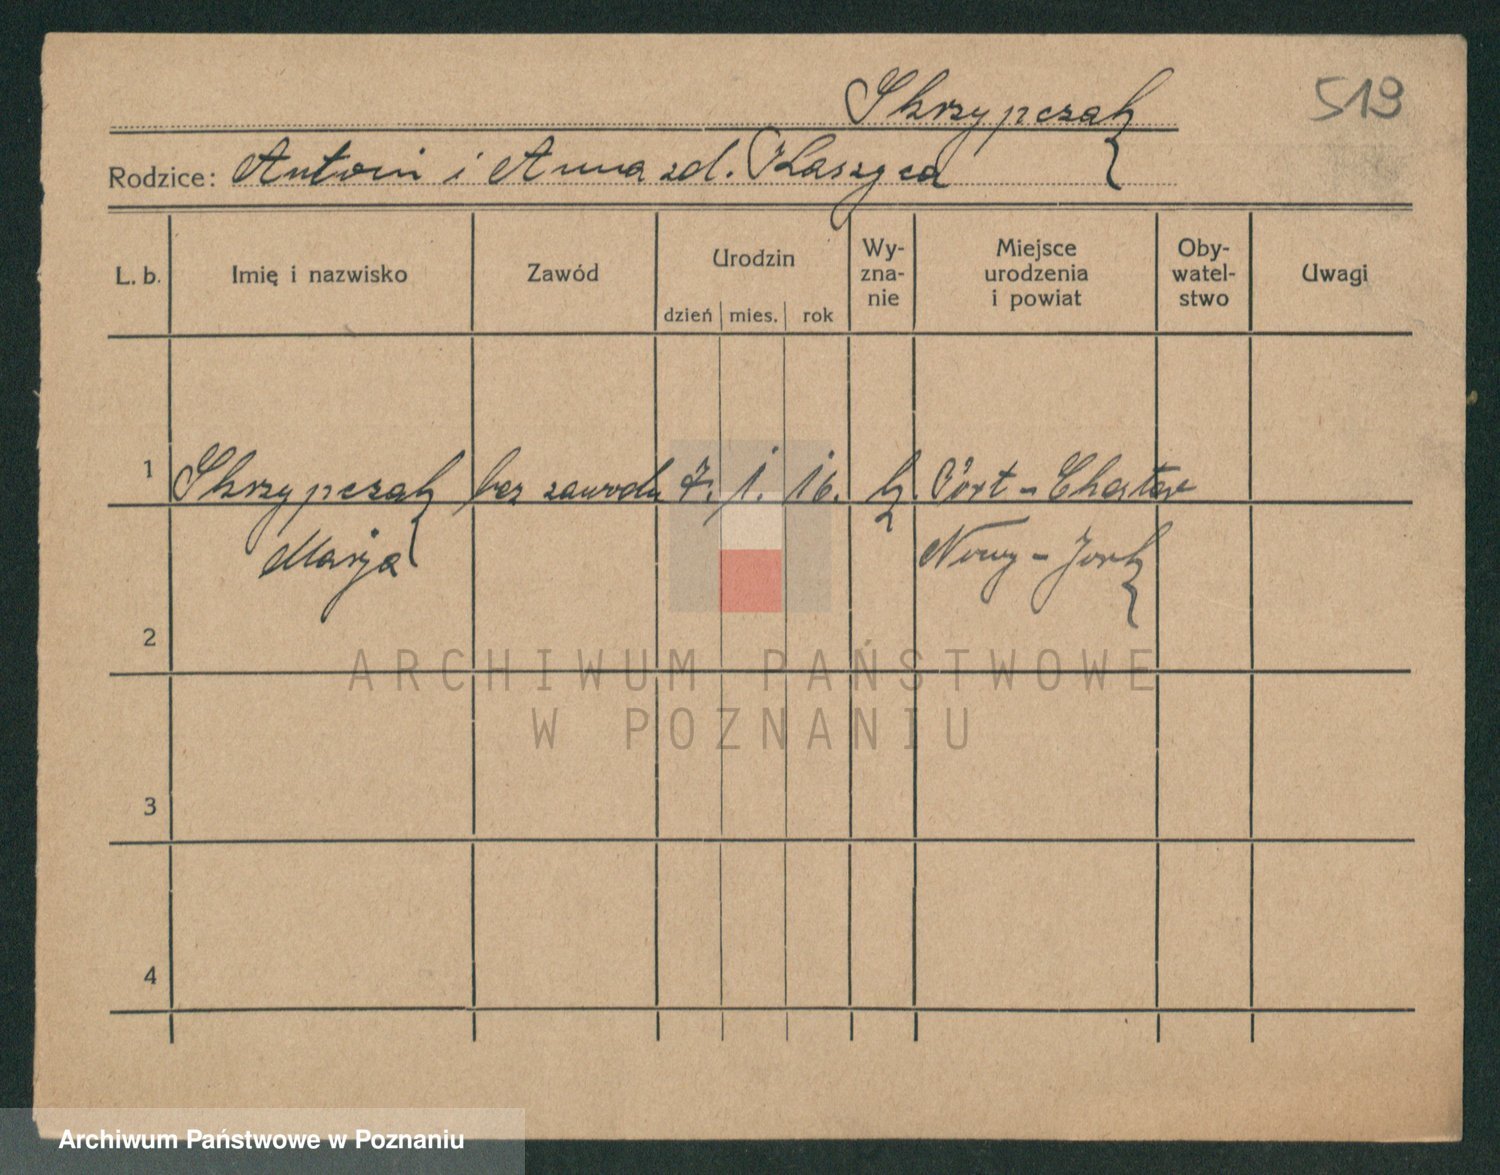 Skrzypczak
519
Rodzice: Antoni i Anna zd. Kaszyca
L. b.
Imię i nazwisko
Zawód
Urodzin
dzień
mies.
rok
Wy-
zna-
nie
Miejsce
urodzenia
i powiat
Oby-
watel-
stwo
Uwagi
1
Skrzypczak bez zawodu 7. 1. 16. k. Port - Chester
Marja Nowy - Jork
2
3
4
ARCHIWUM PAŃSTWOWE
W POZNANIU
Archiwum Państwowe w Poznaniu